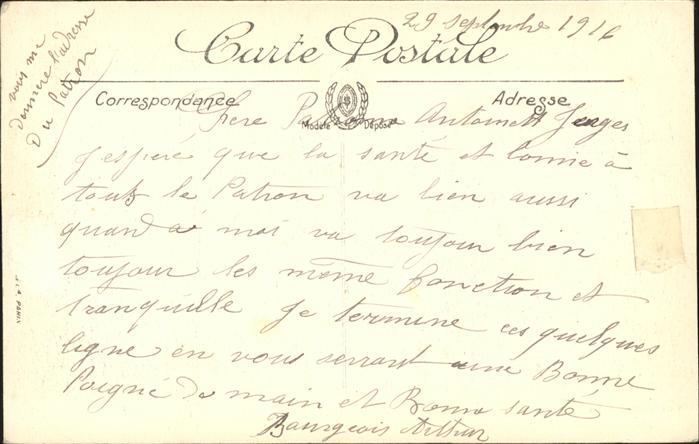 29 septembre 1916
vous me
donnere l'adresse
Du Patron
Carte Postale
Correspondance
Adresse
Modèle Déposé
Chere Patronne Antoinett
J'esperé que la santé et bonne à
touts le Patron va bien aussi
quand a moi va toujour bien
toujour les même fonction et
tranquille Je termine ces quelques
ligne en vous serrant une Bonne
Poigné de main et Bonne santé
Bourgeois Arthur
PARIS